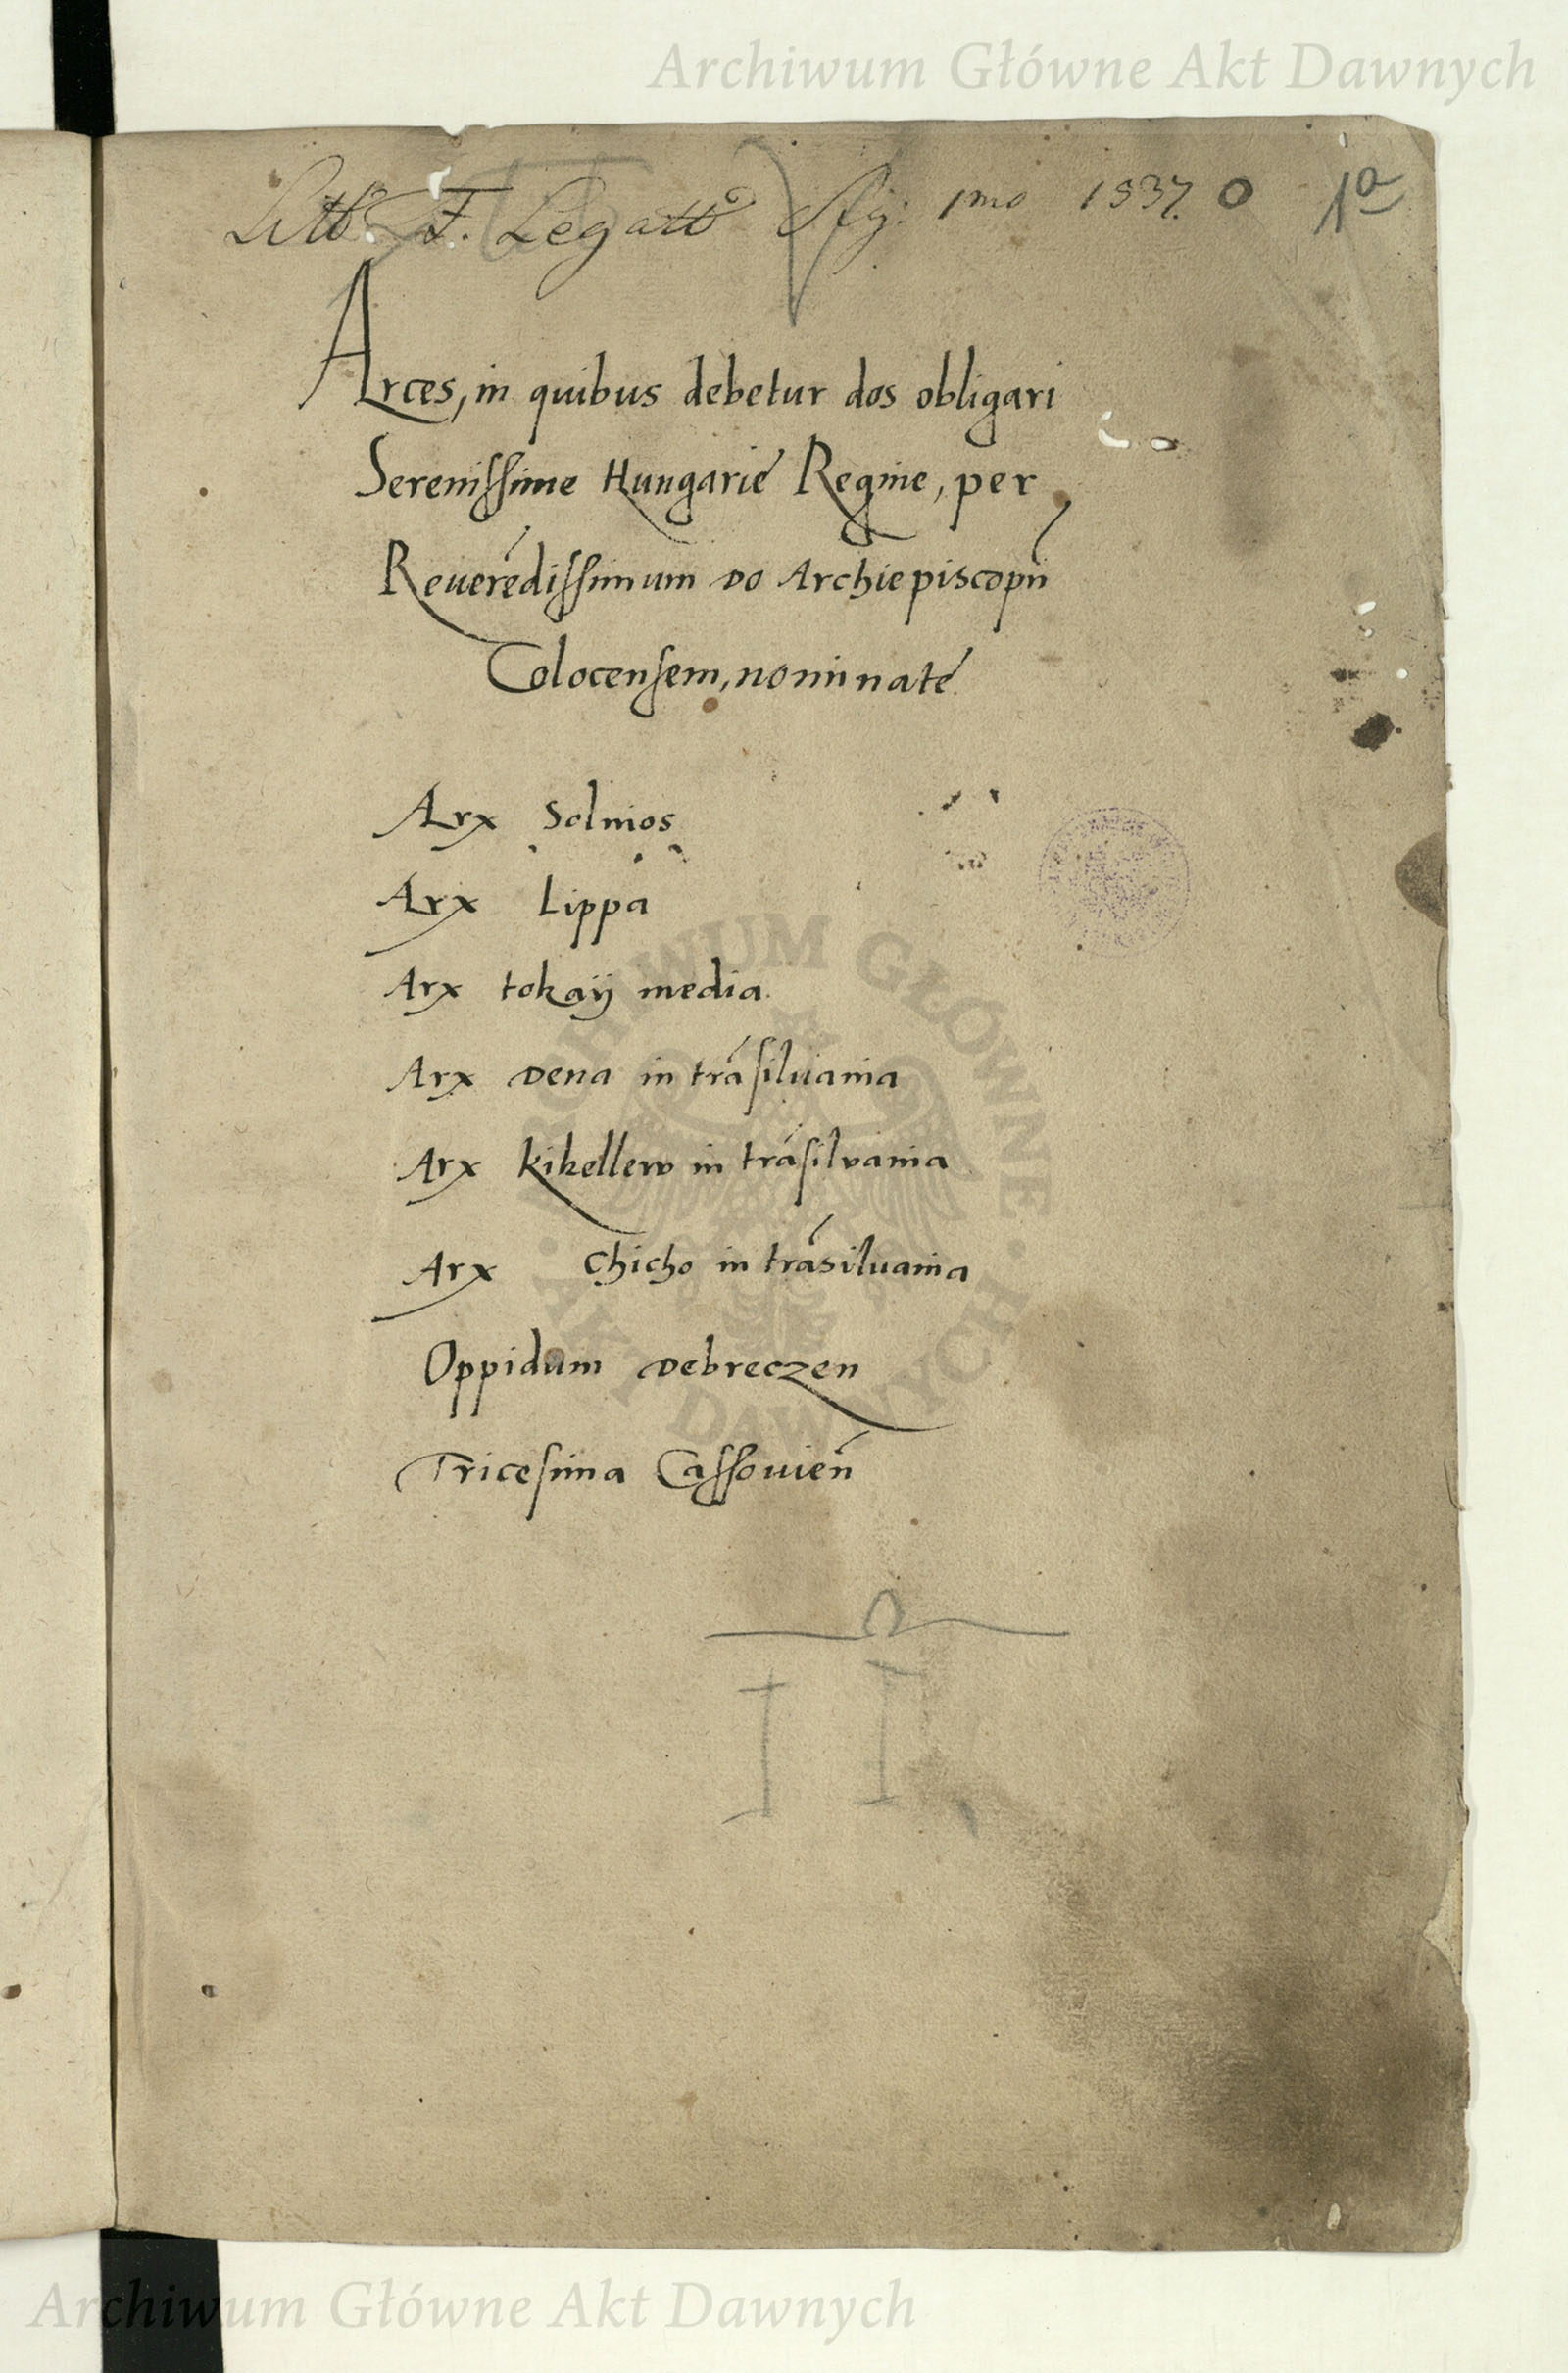 Archiwum Główne Akt Dawnych
Litt F. Legatt 1mo 1537. 1a
Arces, in quibus debetur dos obligari
Serenissime Hungarie Regine, per
Reuerēdissimum do Archiepiscopū
Colocensem, nominate
Arx Solmos
Arx Lippa
Arx tokaÿ media
Arx Deua in trāsiluania
Arx kikellew in trāsilvania
Arx Chicho in trāsiluania
Oppidum Debreczen
Tricesima Cassouien̄
ARCHIWUM GŁÓWNE
AKT DAWNYCH
II
Archiwum Główne Akt Dawnych